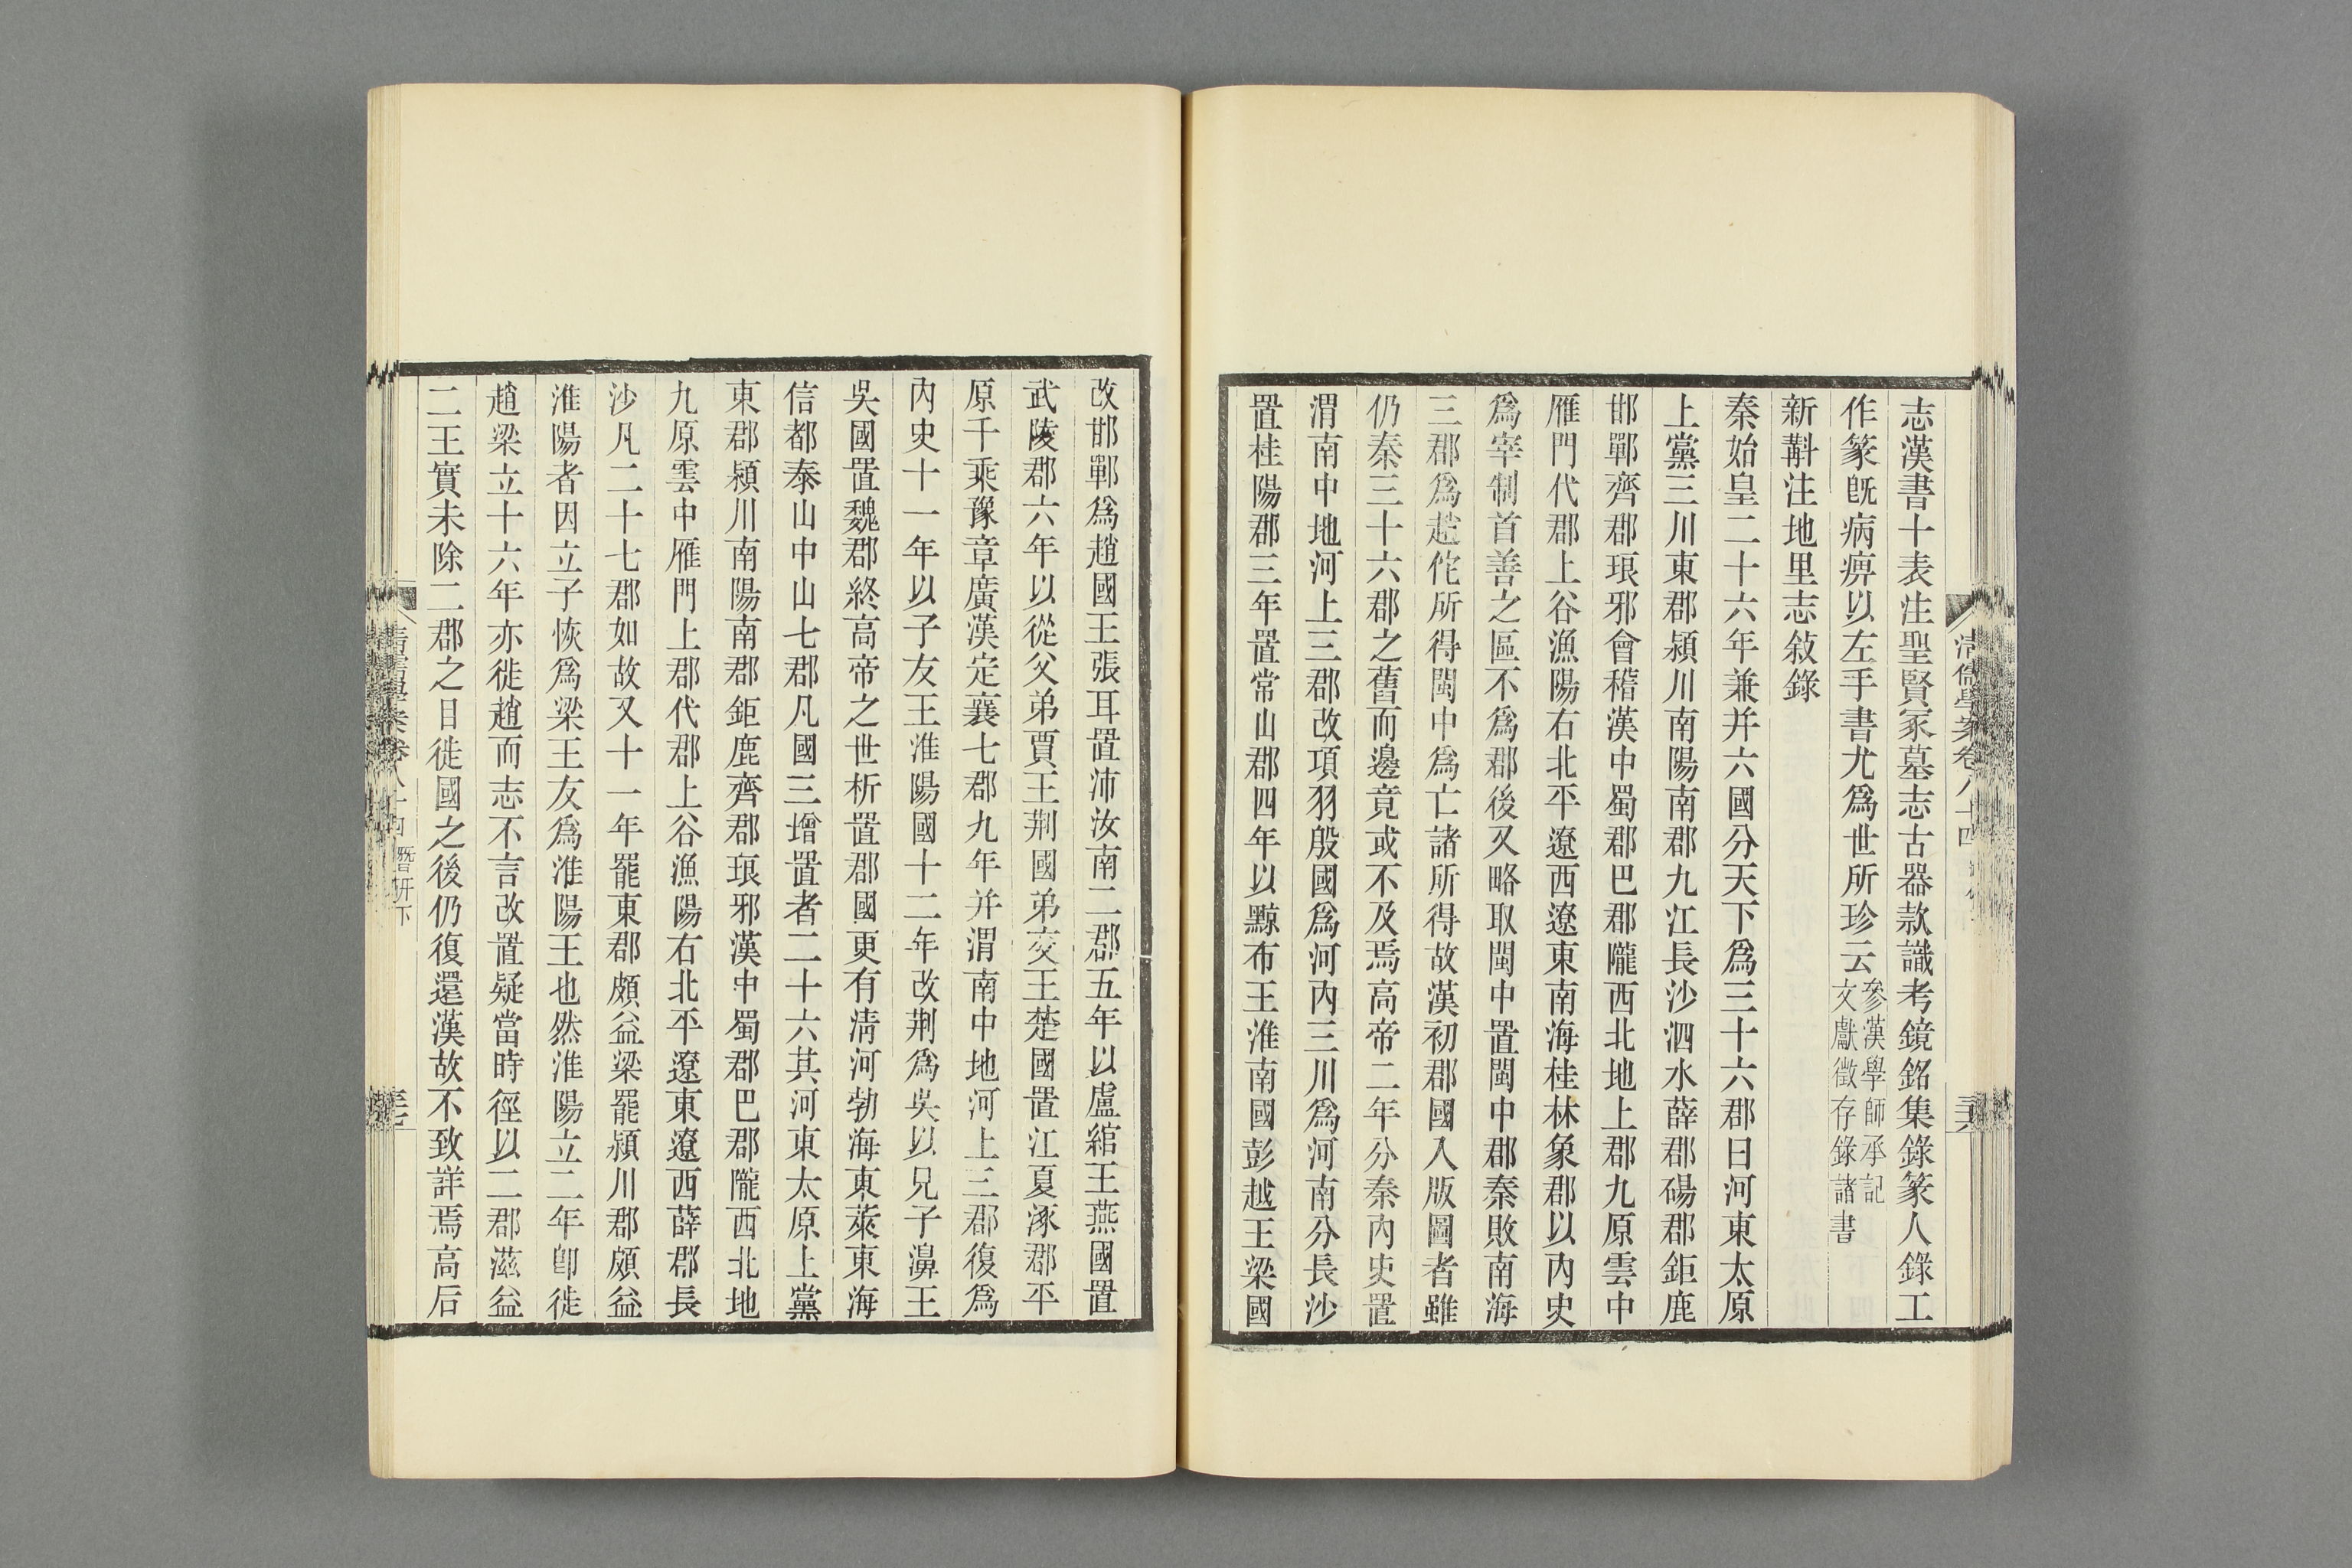 志漢書十表注聖賢冢墓志古器款識考鏡銘集錄篆人錄工
作篆旣病痹以左手書尤爲世所珍云參漢學師承記
文獻徵存錄諸書
新斠注地里志敍錄
秦始皇二十六年兼并六國分天下爲三十六郡曰河東太原
上黨三川東郡潁川南陽南郡九江長沙泗水薛郡碭郡鉅鹿
邯鄲齊郡琅邪會稽漢中蜀郡巴郡隴西北地上郡九原雲中
雁門代郡上谷漁陽右北平遼西遼東南海桂林象郡以內史
爲宰制首善之區不爲郡後又略取閩中置閩中郡秦敗南海
三郡爲趙佗所得閩中爲亡諸所得故漢初郡國入版圖者雖
仍秦三十六郡之舊而邊竟或不及焉高帝二年分秦內史置
渭南中地河上三郡改項羽殷國爲河內三川爲河南分長沙
置桂陽郡三年置常山郡四年以黥布王淮南國彭越王梁國
清儒學案卷八十四
三六
改邯鄲爲趙國王張耳置沛汝南二郡五年以盧綰王燕國置
武陵郡六年以從父弟賈王荆國弟交王楚國置江夏涿郡平
原千乘豫章廣漢定襄七郡九年并渭南中地河上三郡復爲
內史十一年以子友王淮陽國十二年改荆爲吳以兄子濞王
吳國置魏郡終高帝之世析置郡國更有淸河勃海東萊東海
信都泰山中山七郡凡國三增置者二十六其河東太原上黨
東郡潁川南陽南郡鉅鹿齊郡琅邪漢中蜀郡巴郡隴西北地
九原雲中雁門上郡代郡上谷漁陽右北平遼東遼西薛郡長
沙凡二十七郡如故又十一年罷東郡頗益梁罷潁川郡頗益
淮陽者因立子恢爲梁王友爲淮陽王也然淮陽立二年卽徙
趙梁立十六年亦徙趙而志不言改置疑當時徑以二郡滋益
二王實未除二郡之目徙國之後仍復還漢故不致詳焉高后
清儒學案卷八十四 潛研下
三七